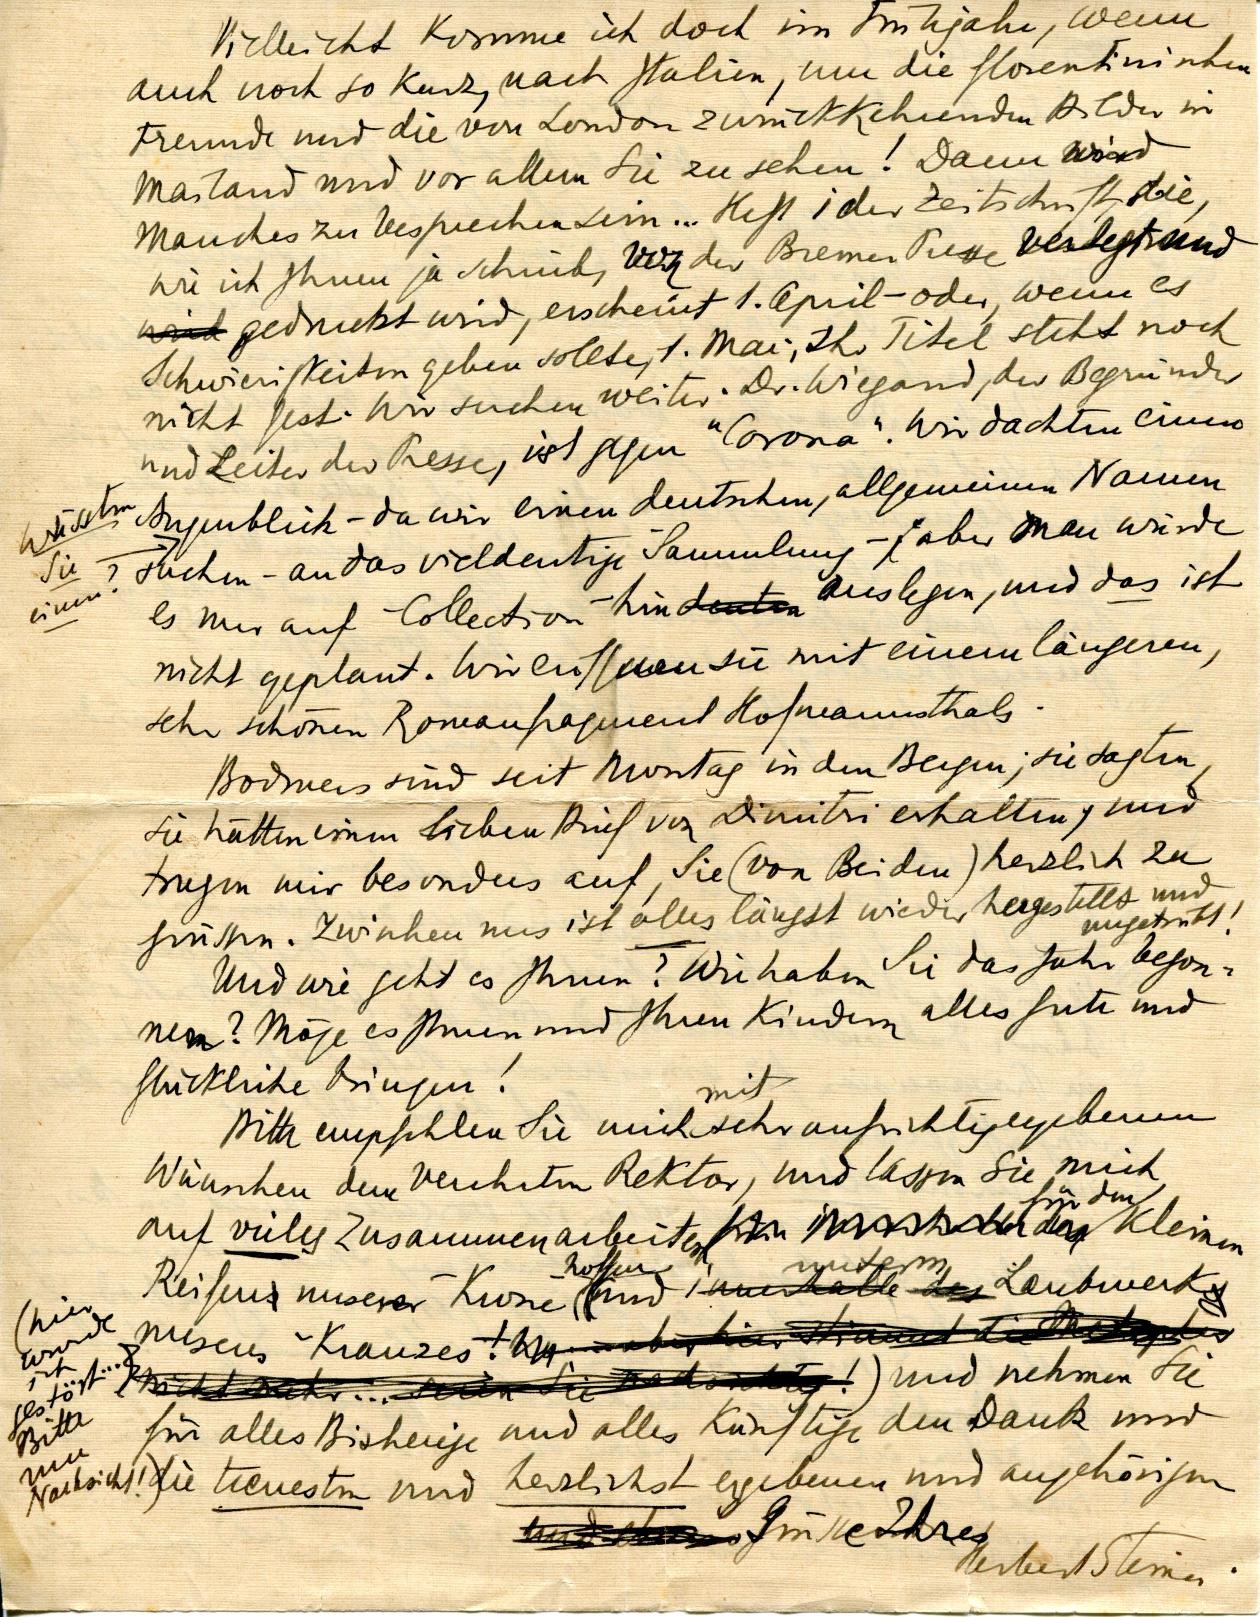 Vielleicht komme ich doch im Frühjahr, wenn
auch noch so kurz, nach Italien, um die florentinischen
Freunde und die von London zurückkehrenden Bilder in
Mailand und vor allem Sie zu sehen! Dann wird
Manches zu besprechen sein... Heft 1 der Zeitschrift, die,
wie ich Ihnen ja schrieb, von der Bremer Presse verlegt und
wird gedruckt wird, erscheint 1. April – oder, wenn es
Schwierigkeiten geben sollte, 1. Mai; Ihr Titel steht noch
nicht fest. Wir suchen weiter. Dr. Wiegand, der Begründer
und Leiter der Presse, ist gegen "Corona". Wir dachten einen
Augenblick – da wir einen deutschen, allgemeinen Namen
suchen – an das vieldeutige Sammlung – aber man würde
wüssten
Sie
einen?
es nur auf Collection hindeuten auslegen, und das ist
nicht geplant. Wir eröffnen sie mit einem längeren,
sehr schönen Romanfragment Hofmannsthals.
Bodmers sind seit Montag in den Bergen; sie sagten,
sie hätten einen lieben Brief von Dimitri erhalten, und
trugen mir besonders auf, Sie (von Beiden) herzlich zu
grüssen. Zwischen uns ist alles längst wieder hergestellt und
ungetrübt!
Und wie geht es Ihnen? Wie haben Sie das Jahr begon-
nen? Möge es Ihnen und Ihren Kindern alles Gute und
Glückliche bringen!
mit
Bitte empfehlen Sie mich sehr aufrichtig ergebenen
Wünschen dem verehrten Rektor, und lassen Sie mich
für den
auf vieles Zusammenarbeiten kleinen
hoffen unserm
Reifen unserer Krone (und innerhalb des Laubwerks
unseres Kranzes! aber hier stimmt die
nicht mehr... seien Sie !) und nehmen Sie
(hier
wurde
ich
gestört...
Bitte
um
Nachsicht!)
für alles Bisherige und alles Künftige den Dank und
die treuesten und herzlichst ergebenen und angehörigen
und Grüsse Ihres
Herbert Steiner.